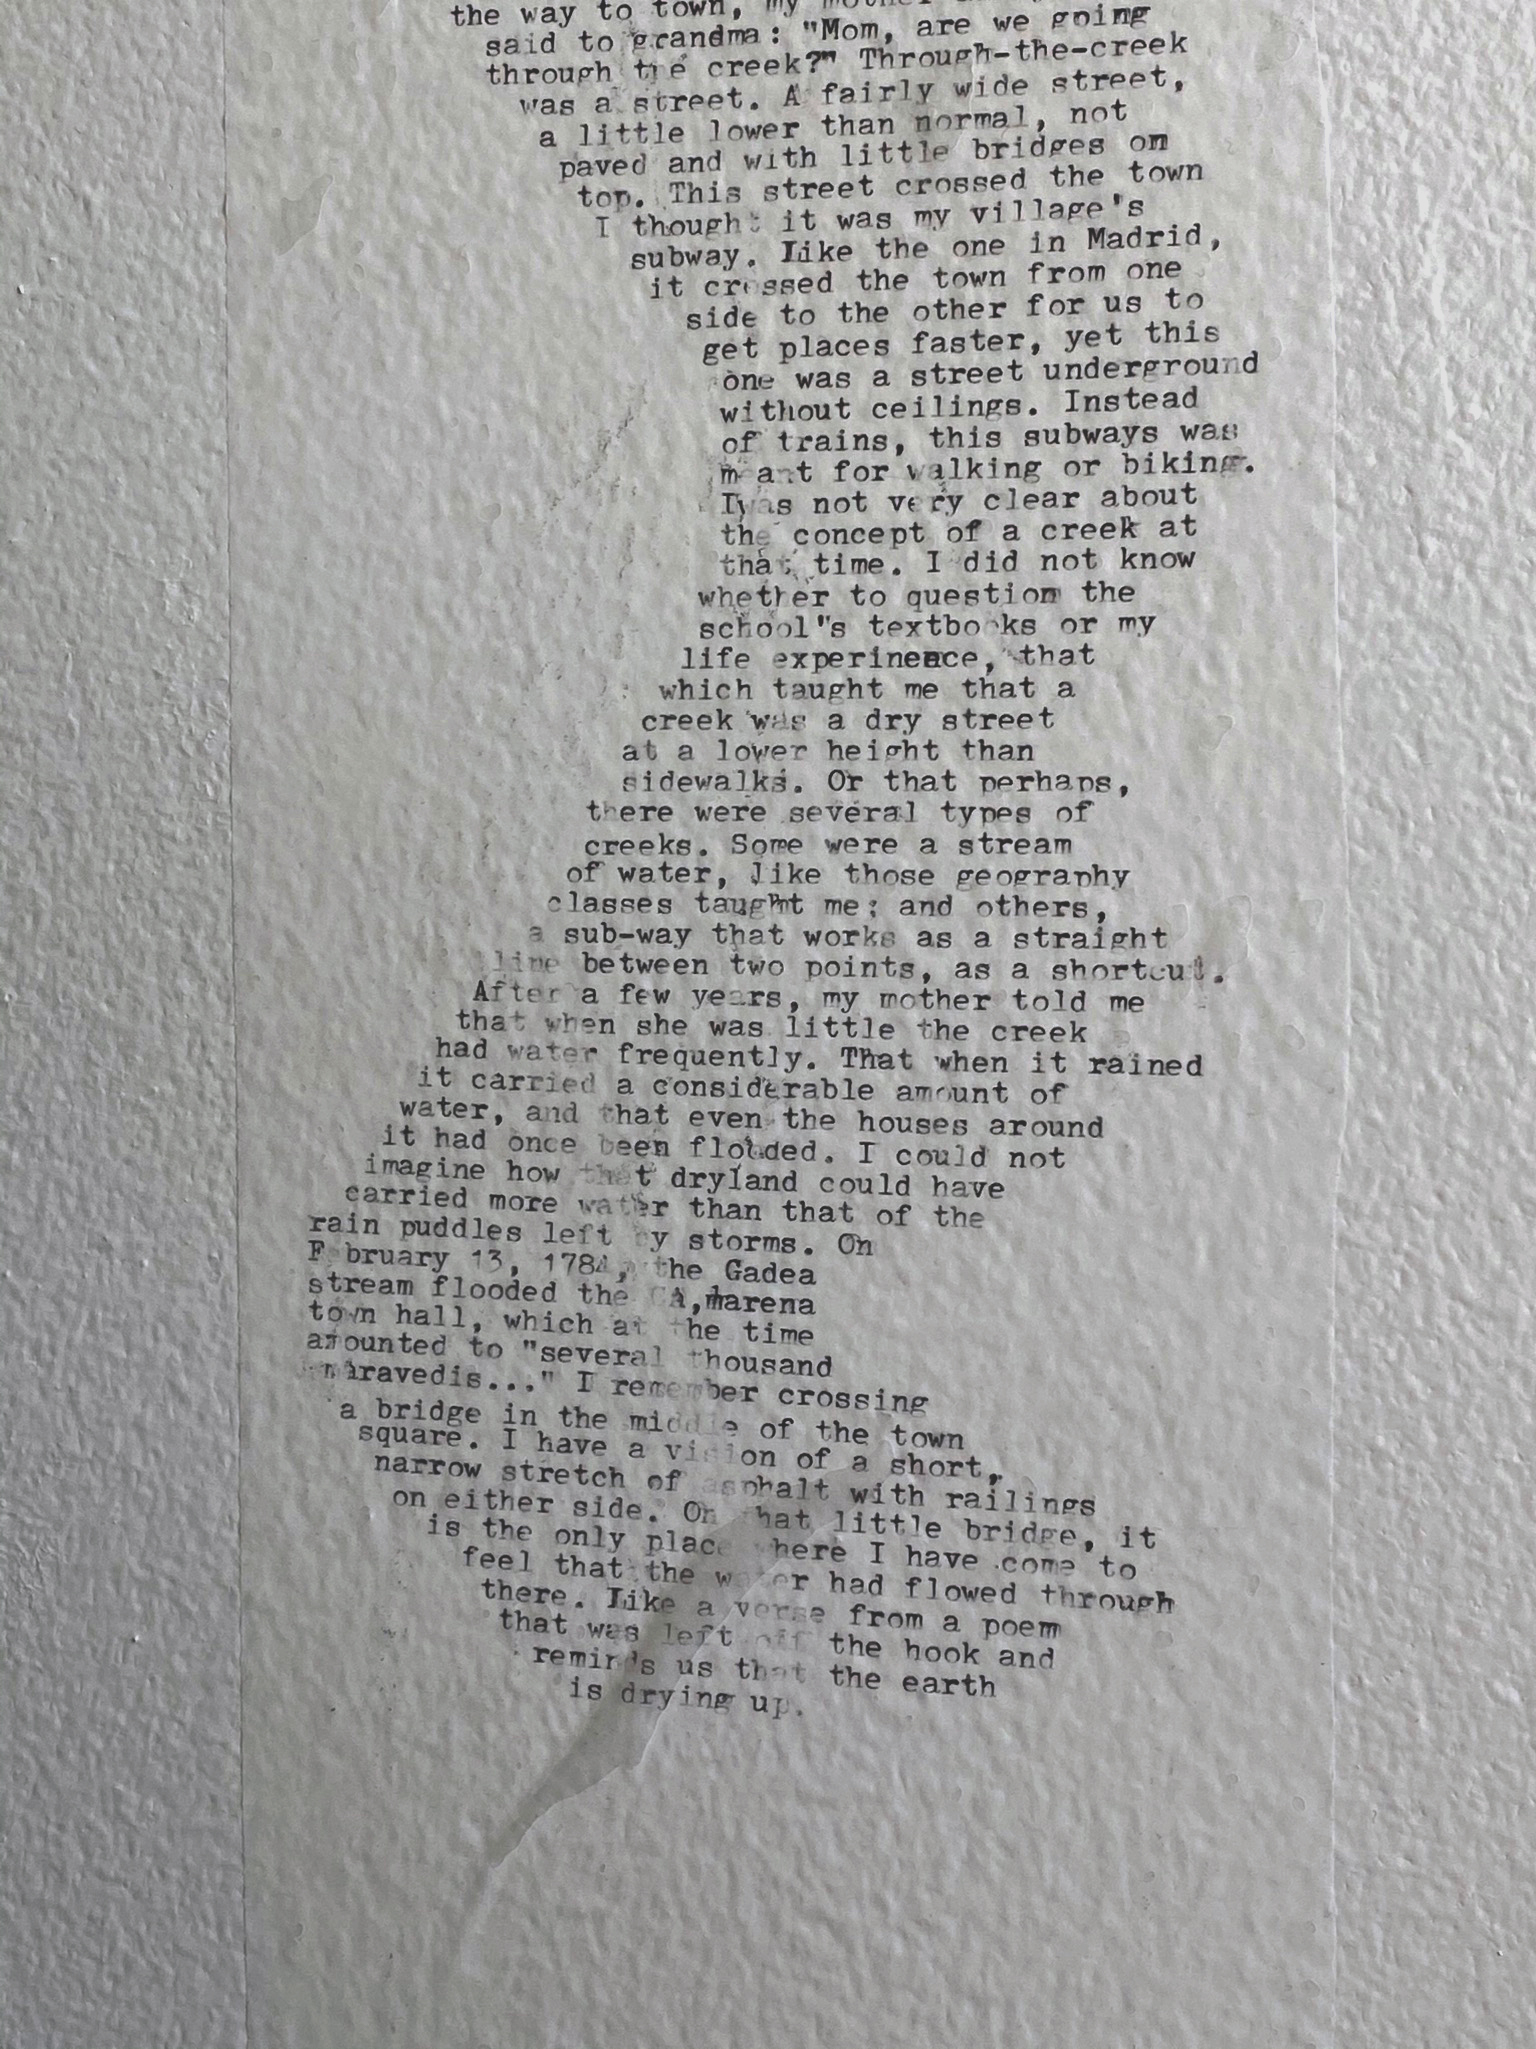 the way to town, my mother
said to grandma: "Mom, are we going
through the creek?" Through-the-creek
was a street. A fairly wide street,
a little lower than normal, not
paved and with little bridges on
top. This street crossed the town
I thought it was my village's
subway. Like the one in Madrid,
it crossed the town from one
side to the other for us to
get places faster, yet this
one was a street underground
without ceilings. Instead
of trains, this subways was
meant for walking or biking.
I was not very clear about
the concept of a creek at
that time. I did not know
whether to question the
school"s textbooks or my
life experinence, that
which taught me that a
creek was a dry street
at a lower height than
sidewalks. Or that perhaps,
there were several types of
creeks. Some were a stream
of water, like those geography
classes taught me; and others,
a sub-way that works as a straight
line between two points, as a shortcut.
After a few years, my mother told me
that when she was little the creek
had water frequently. That when it rained
it carried a considerable amount of
water, and that even the houses around
it had once been flooded. I could not
imagine how that dryland could have
carried more water than that of the
rain puddles left by storms. On
February 13, 1784, the Gadea
stream flooded the CA,marena
town hall, which at the time
amounted to "several thousand
maravedis..." I remember crossing
a bridge in the middle of the town
square. I have a vision of a short,
narrow stretch of asphalt with railings
on either side. On that little bridge, it
is the only place where I have come to
feel that the water had flowed through
there. Like a verse from a poem
that was left off the hook and
reminds us that the earth
is drying up.